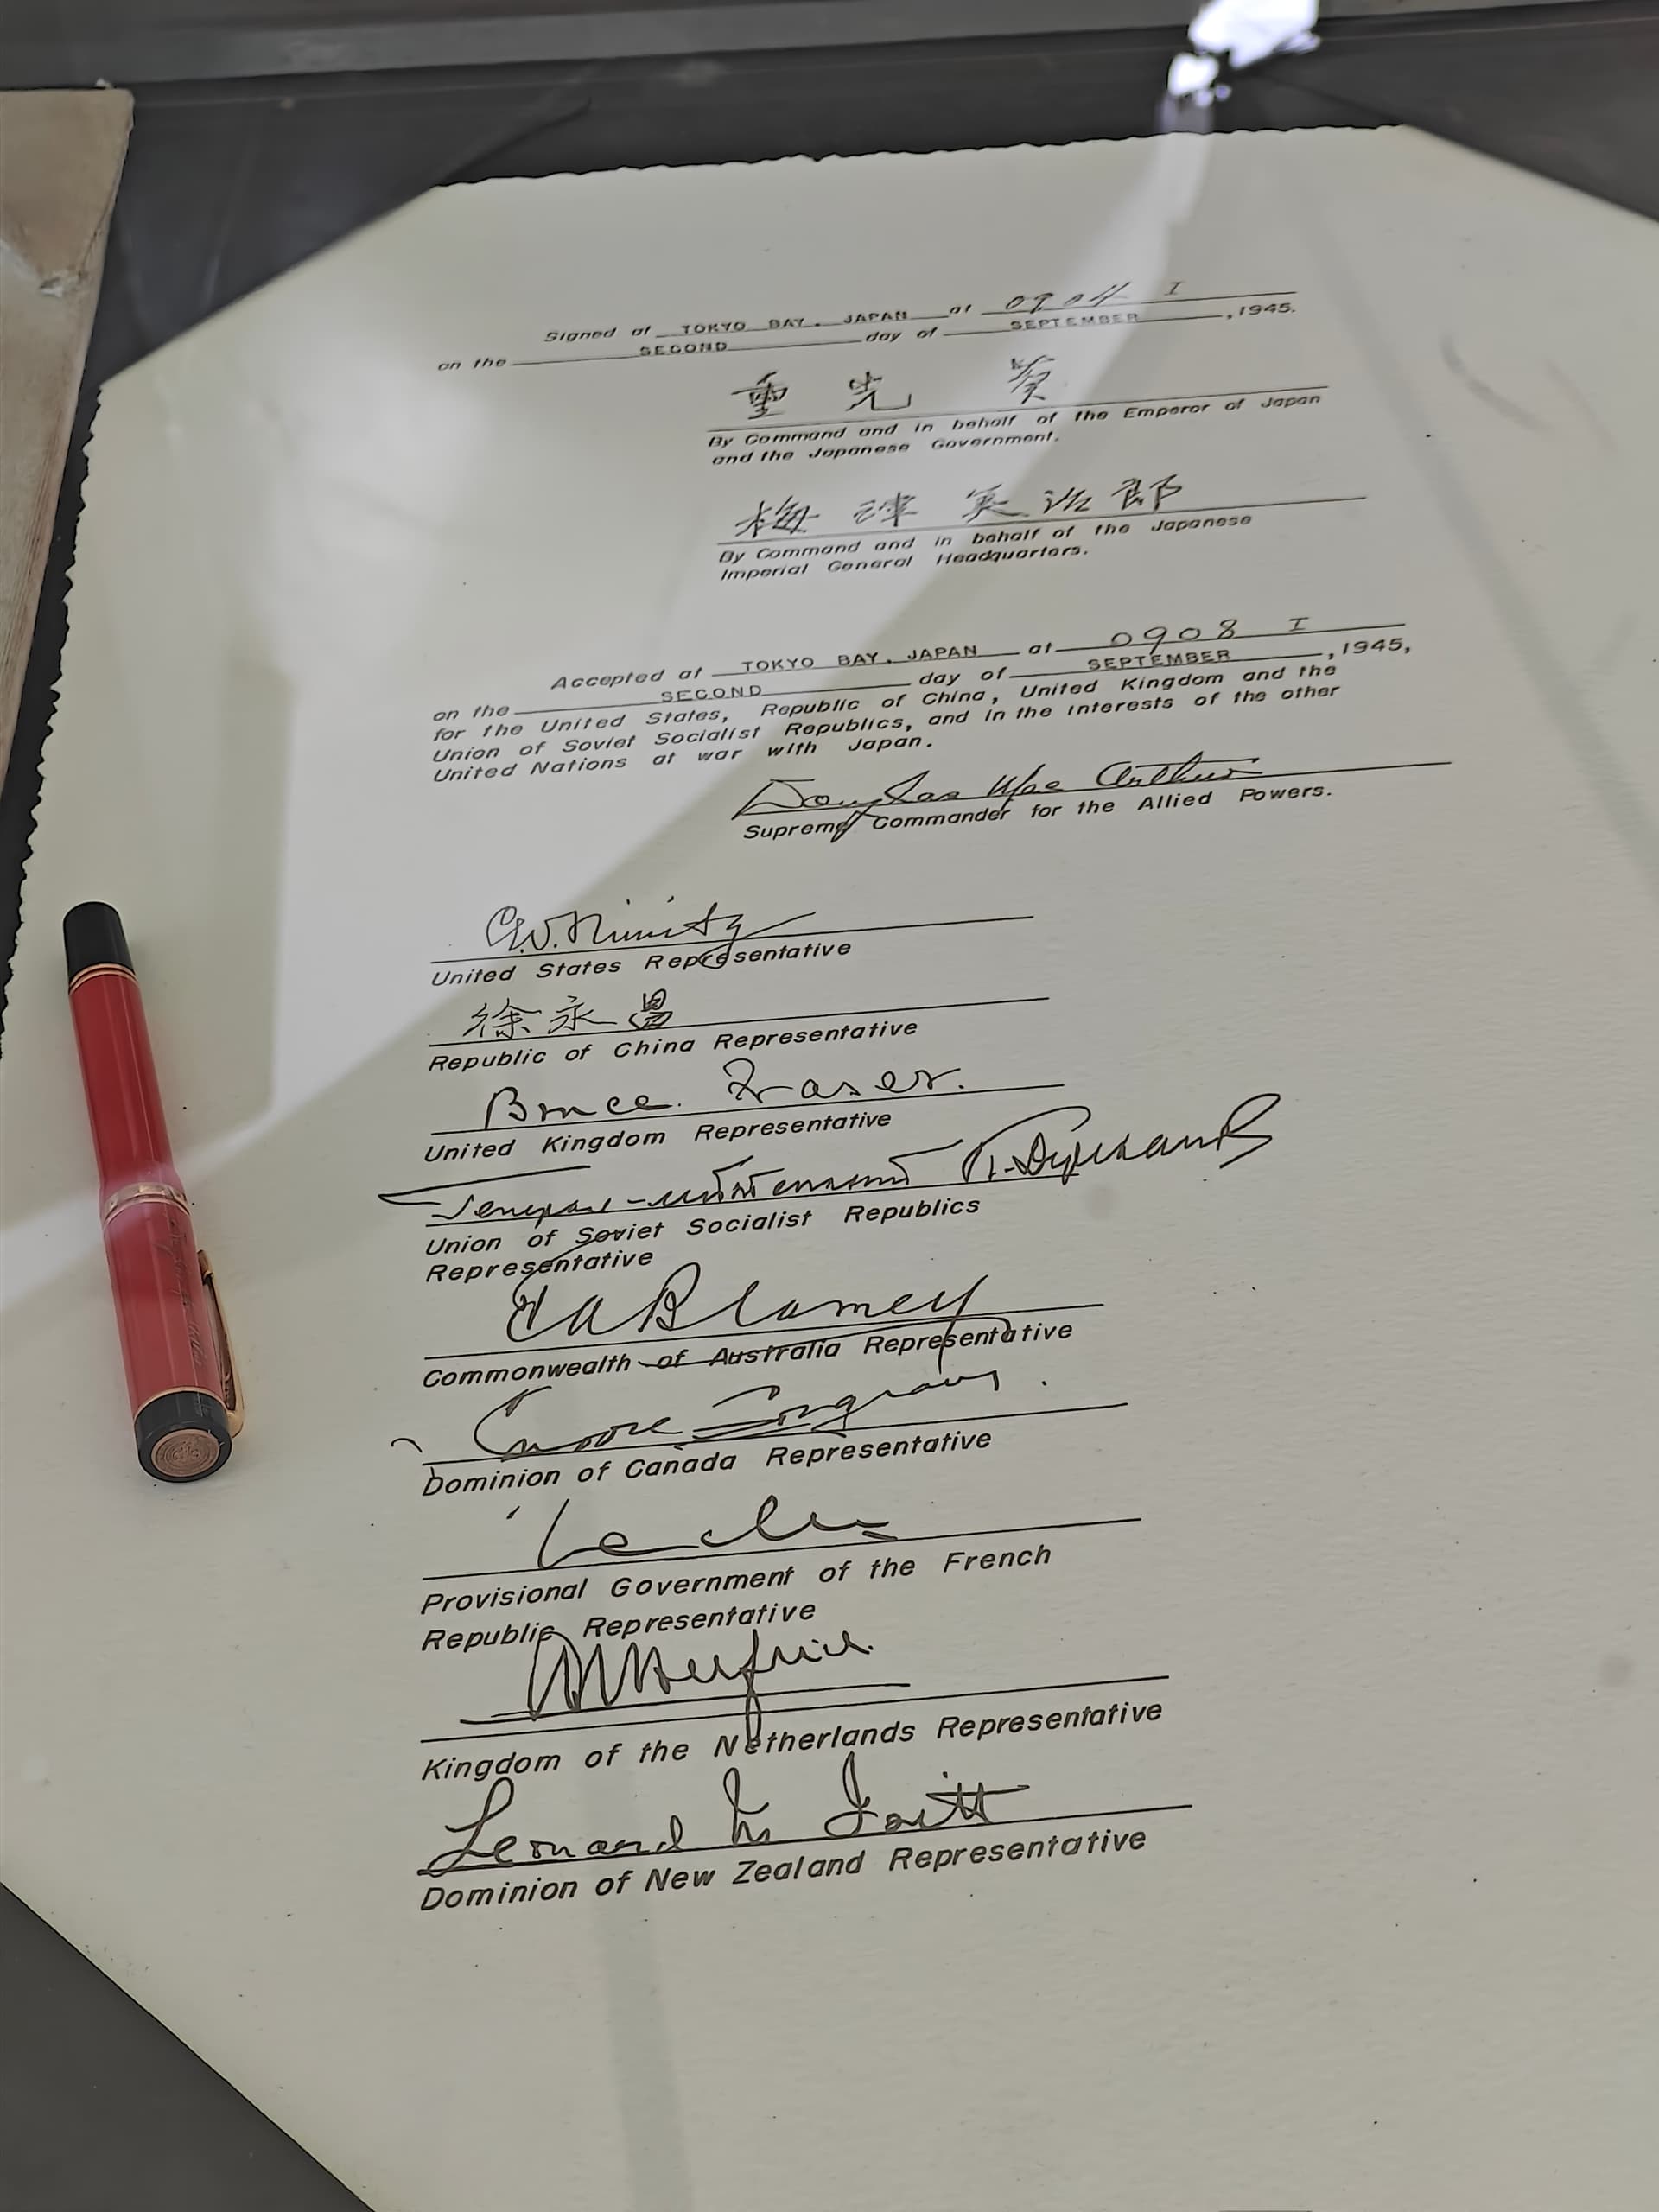 Signed at TOKYO BAY, JAPAN at 0904 I
on the SECOND day of SEPTEMBER, 1945.
重光葵
By Command and in behalf of the Emperor of Japan
and the Japanese Government.
梅津美治郎
By Command and in behalf of the Japanese
Imperial General Headquarters.
Accepted at TOKYO BAY, JAPAN at 0908 I
on the SECOND day of SEPTEMBER, 1945,
for the United States, Republic of China, United Kingdom and the
Union of Soviet Socialist Republics, and in the interests of the other
United Nations at war with Japan.
Douglas MacArthur
Supreme Commander for the Allied Powers.
C.W. Nimitz
United States Representative
徐永昌
Republic of China Representative
Bruce Fraser.
United Kingdom Representative
Генерал-лейтенант К. Деревянко
Union of Soviet Socialist Republics
Representative
T A Blamey
Commonwealth of Australia Representative
L. Moore Cosgrave.
Dominion of Canada Representative
Leclerc
Provisional Government of the French
Republic Representative
Helfrich.
Kingdom of the Netherlands Representative
Leonard M Isitt
Dominion of New Zealand Representative